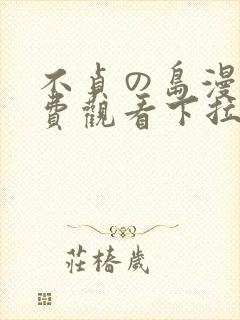 不貞の島漫
費觀看下拉
莊椿歲